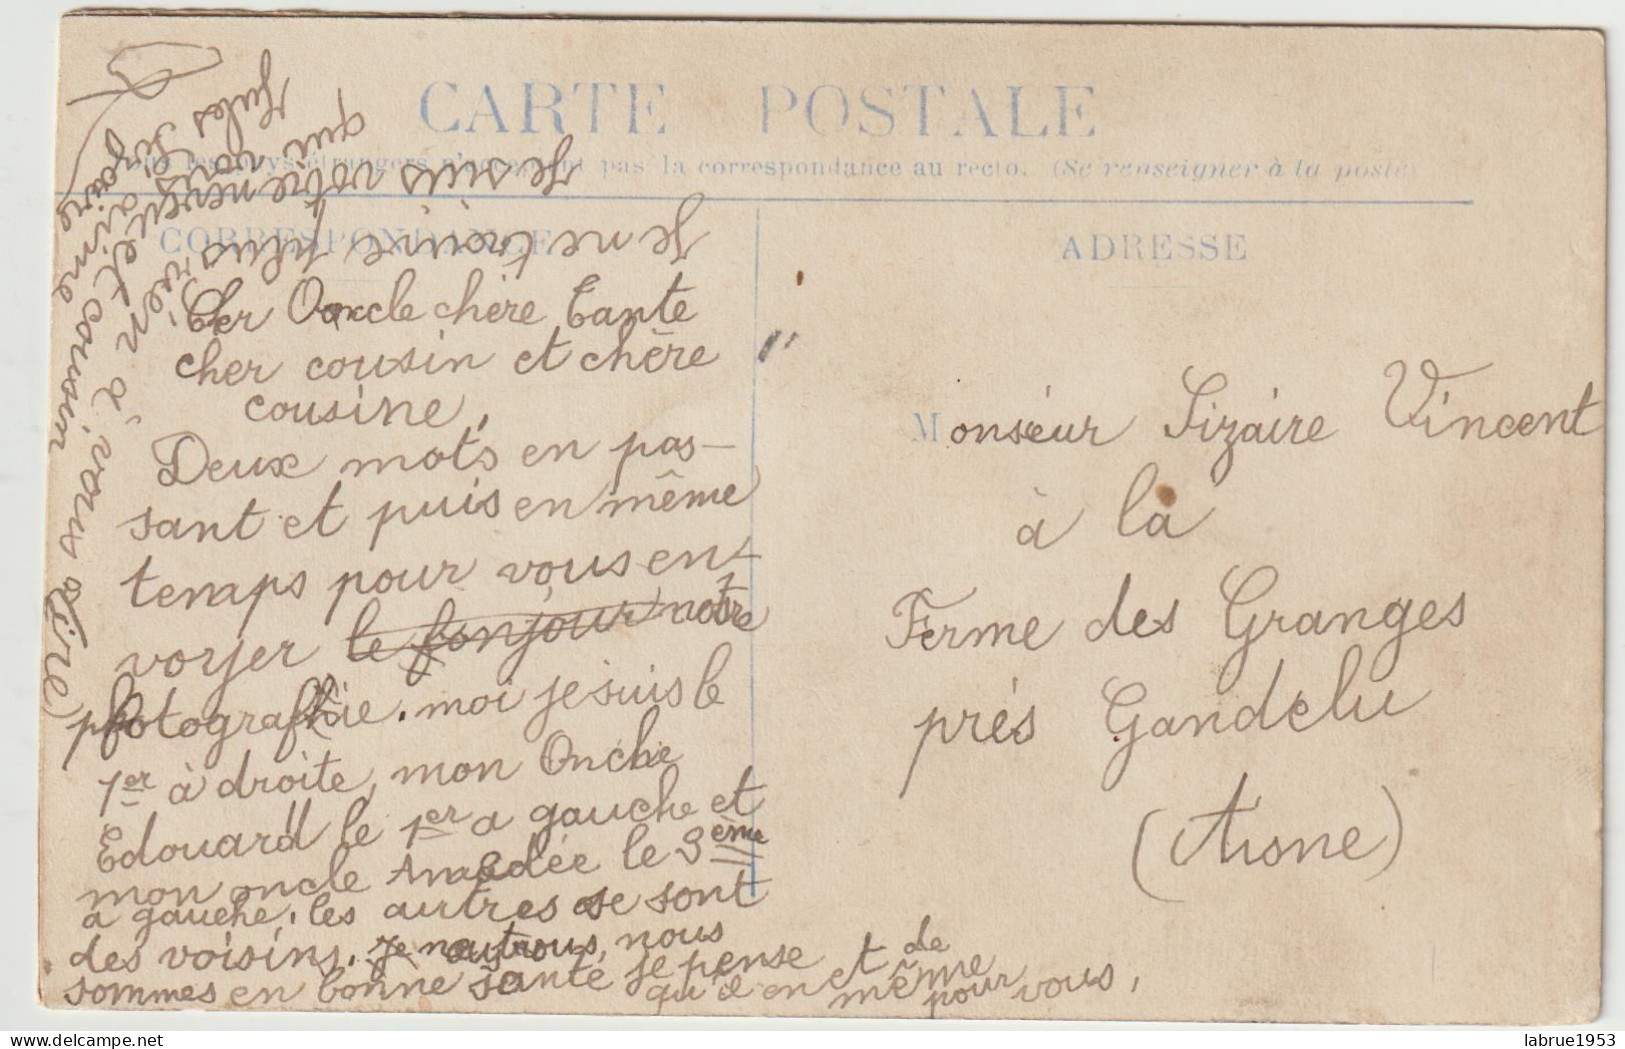 CARTE POSTALE
Tous les pays étrangers n'acceptent pas la correspondance au recto. (Se renseigner à la poste)
CORRESPONDANCE
ADRESSE
Cher Oncle chère Tante
cher cousin et chère
cousine,
Deux mots en pas-
sant et puis en même
temps pour vous en-
voyer le bonjour notre
photographie. moi je suis le
1er à droite, mon Onche
Edouard le 1er a gauche et
mon oncle Amédée le 3ème
a gauche, les autres se sont
des voisins. nous
sommes en bonne santé je pense
qu'il en et de
même
pour vous,
Je ne trouve plus rien à vous dire
Je suis votre neveu et cousin
qui vous aime
Jules Sizaire
Monsieur Sizaire Vincent
à la
Ferme des Granges
près Gandelu
(Aisne)
delcampe.net
labrue1953